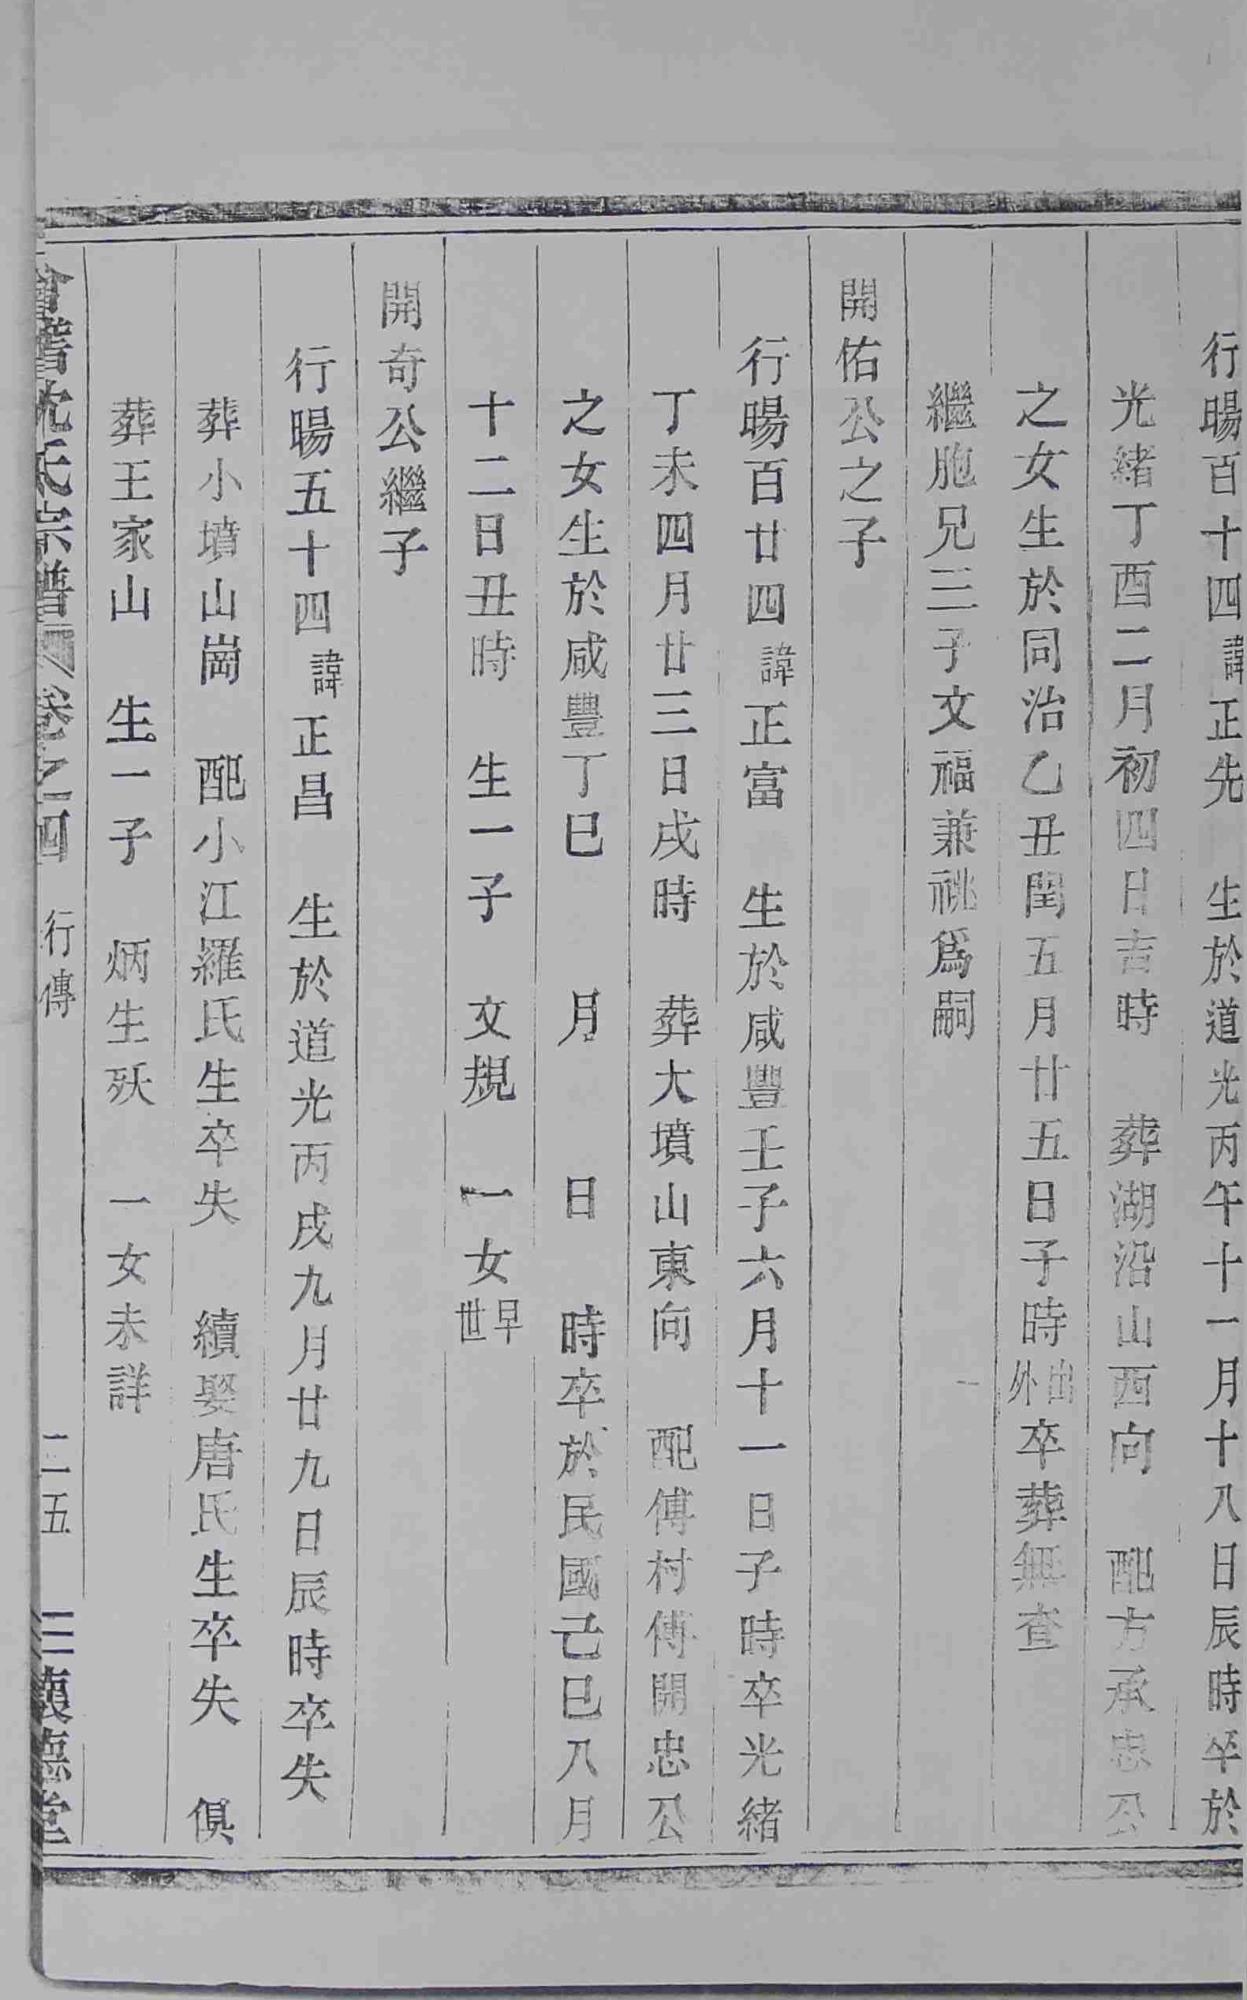 行暘百十四諱正先　生於道光丙午十一月十八日辰時卒於
光緒丁酉二月初四日吉時　葬湖沿山西向　配方承忠公
之女生於同治乙丑閏五月廿五日子時出外卒葬無查
繼胞兄三子文福兼祧爲嗣
開佑公之子
行暘百廿四諱正富　生於咸豐壬子六月十一日子時卒光緒
丁未四月廿三日戌時　葬大墳山東向　配傅村傅開忠公
之女生於咸豐丁巳　月　日　時卒於民國己巳八月
十二日丑時　生一子　文規　一女早世
開奇公繼子
行暘五十四諱正昌　生於道光丙戌九月廿九日辰時卒失
葬小墳山崗　配小江羅氏生卒失　續娶唐氏生卒失　俱
葬王家山　生一子　炳生殀　一女未詳
會稽沈氏宗譜　卷之四　行傳　二五　三懷德堂